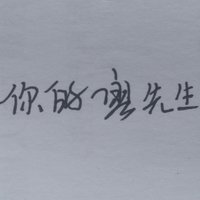 你的先生